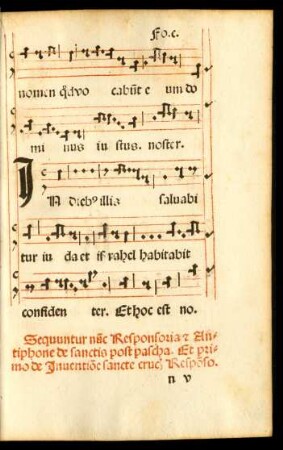 Fo.c.
nomen qđ vo cabūt e um do
mi nus iu stus. noster.
IN diebꝰ illis saluabi
tur iu da et israhel habitabit
confiden ter. Et hoc est no.
Sequuntur nūc Responsoria ⁊ An-
tiphone de sanctis post pascha. Et pri-
mo de Inuentiōe sancte cruc̄ Respōso.
n v